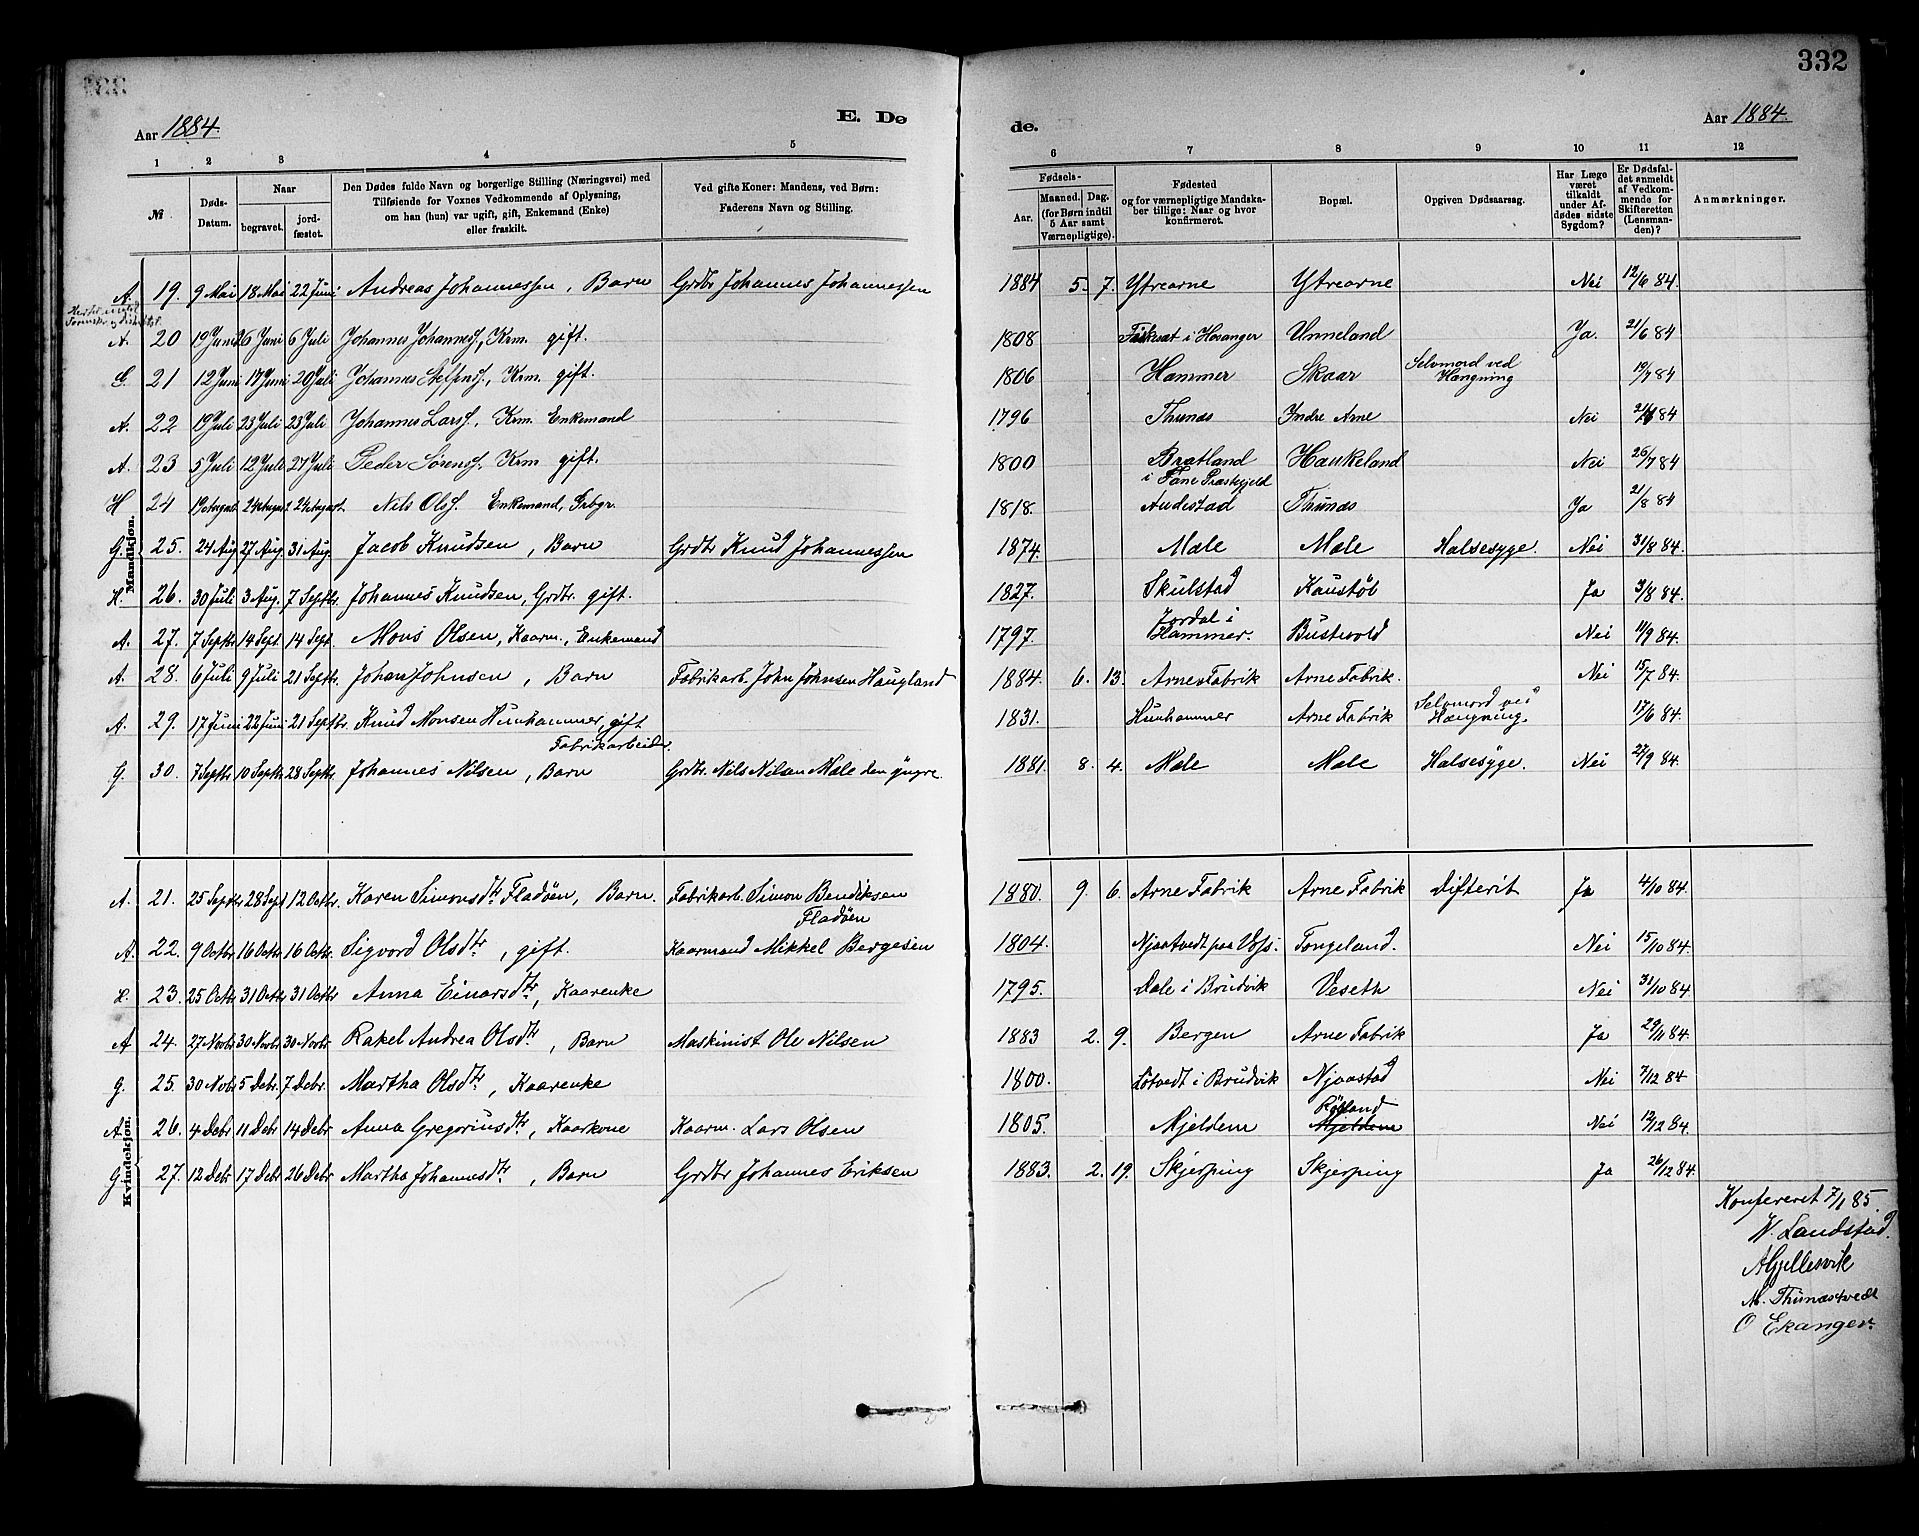 332
Aar 1884.
E. Dø
de.
Aar 1884.
1 2 3 4 5 6 7 8 9 10 11 12
№
Døds-Datum.
Naar
begravet.
jord-fæstet.
Den Dødes fulde Navn og borgerlige Stilling (Næringsvei) med
Tilføiende for Voxnes Vedkommende af Oplysning,
om han (hun) var ugift, gift, Enkemand (Enke)
eller fraskilt.
Ved gifte Koner: Mandens, ved Børn:
Faderens Navn og Stilling.
Fødsels-
Aar.
Maaned. Dag.
(for Børn indtil
5 Aar samt
Værnepligtige).
Fødested
og for værnepligtige Mandska-
ber tillige: Naar og hvor
konfirmeret.
Bopæl.
Opgiven Dødsaarsag.
Har Læge
været
tilkaldt
under Af-
dødes sidste
Sygdom?
Er Dødsfal-
det anmeldt
af Vedkom-
mende for
Skifteretten
(Lensman-
den)?
Anmærkninger.
Mandkjøn.
A. 19. 9 Mai 18 Mai 22 Juni Andreas Johannessen, Barn Grdbr Johannes Johannessen 1884 5. 7. Ytrearne Ytrearne Nei 12/6 84
A. 20 19 Juni 26 Juni 6 Juli Johannes Johanness., Krm. gift. 1808 i Hosanger Unneland Ja. 21/6 84
G. 21 12 Juni 17 Juni 20 Juli Johannes Steffens., Krm. gift. 1806 Hammer Skaar Selvmord ved
Hængning 19/7 84
A. 22 19 Juli 23 Juli 23 Juli Johannes Larss., Krm. Enkemand 1796 Thunæs Indre Arne Nei 84
A. 23 5 Juli 12 Juli 27 Juli Peder Sørenss. Krm. gift. 1800 Bratland
i Fane Præstegjeld Haukeland Nei 26/7 84
H 24 19 August 24 August 24 August Nils Olss. Enkemand, Grbgr. 1818. Andestad Thunæs Ja 21/8 84
G. 25. 24 Aug 27 Aug. 31 Aug. Jacob Knudsen, Barn Grdbr Knud Johannessen 1874. Mæle Mæle Halsesyge. Nei 31/8 84.
H. 26. 30 Juli 3 Aug. 7 Septbr. Johannes Knudsen, Grdbr. gift. 1827. Skulstad Kaustøb Ja 3/8 84.
A. 27. 7 Septbr 14 Sept. 14 Sept. Mons Olsen, Kaarm., Enkemand 1797. Jordal i
Hammer. Bustvold Nei 11/9 84.
A. 28. 6 Juli 9 Juli 21 Septbr. Johan Johnsen, Barn Fabrikarb. John Johnsen Haugland 1884. 6. 13. Arne Fabrik Arne Fabrik. Nei 15/7 84.
A. 29. 17 Juni 22 Juni 21 Septbr. Knud Monsen Hunhammer, gift
Fabrikarbeider. 1831. Hunhammer Arne Fabrik Selvmord ved
Hængning. 17/6 84.
G. 30. 7 Septbr 10 Septbr 28 Septbr. Johannes Nilsen, Barn Grdbr. Nils Nilsen Mæle den yngre. 1881. 8. 4. Mæle Mæle Halsesyge. Nei 27/9 84.
Kvindekjøn.
A. 21. 25 Septbr 28 Sept 12 Octbr. Karen Simonsdtr Fladøen, Barn. Fabrikarb. Simon Bendiksen
Fladøen 1880. 9. 6. Arne Fabrik Arne Fabrik Difterit Ja 4/10 84.
A. 22. 9 Octbr 16 Octbr. 16 Octbr. Sigvord Olsdtr, gift. Kaarmand Mikkel Bergesen 1804. Njaatvedt paa Voss. Tongeland. Nei 15/10 84.
H. 23. 25 Octbr 31 Octbr 31 Octbr Anna Einarsdtr, Kaarenke 1795. Dale i Brudvik Veseth Nei 31/10 84
A 24. 27 Novbr 30 Novbr. 30 Novbr. Rakel Andrea Olsdtr, Barn Maskinist Ole Nilsen 1883 2. 9. Bergen Arne Fabrik Ja 29/11 84.
G. 25. 30 Novbr 5 Debr. 7 Debr. Martha Olsdtr, Kaarenke 1800. i Brudvik Njaastad Nei 7/12 84
A. 26. 4 Debr 11 Debr 14 Debr Anna Gregoriusdtr, Kaarkone Kaarm. Lars Olsen 1805. Mjeldem Røland
Mjeldem Nei 12/12 84.
G. 27. 12 Debr 17 Debr 26 Debr Martha Johannesdtr, Barn Grdbr Johannes Eriksen 1883. 2. 19. Skjerping Skjerping Ja 26/12 84.
Konfereret 7/1 85.
W. Landstad.
A Gjellesvik
M. Thunæstvedt
O Ekanger.